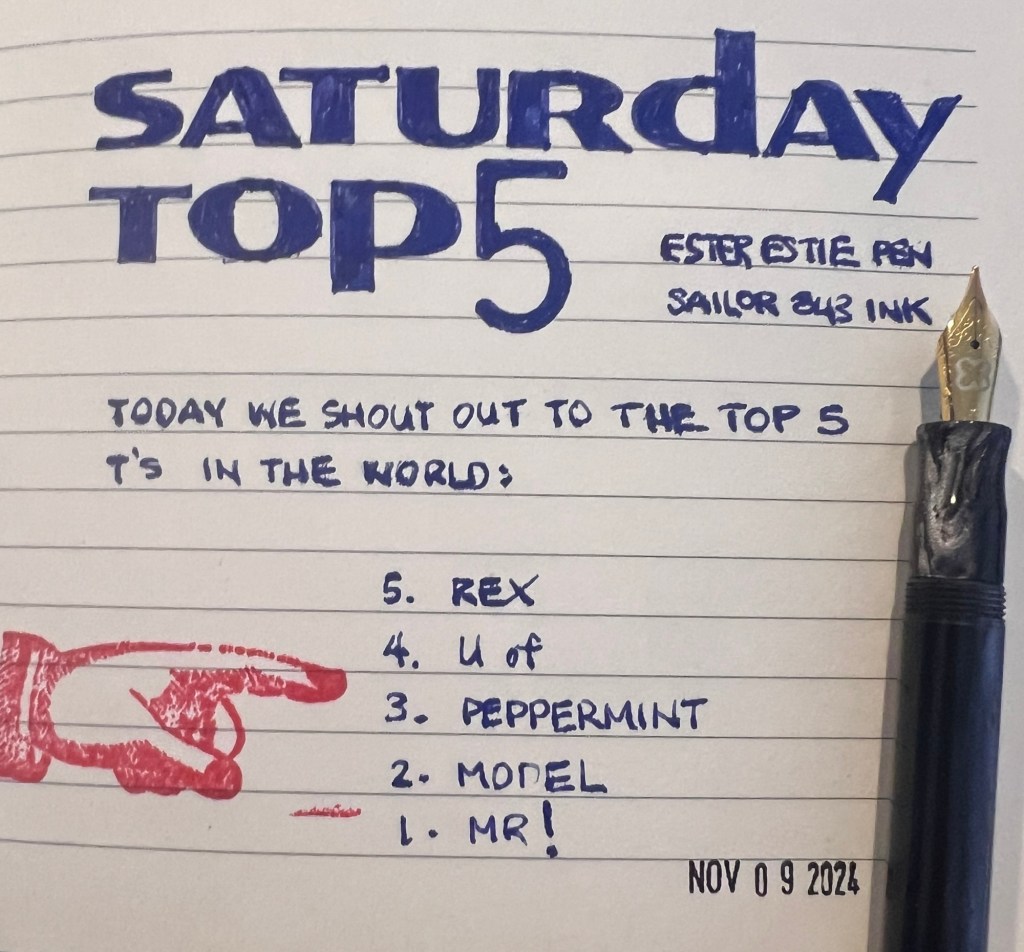 SATURdAy
TOP 5
ESTER ESTIE PEN
SAILOR 843 INK
TODAY WE SHOUT OUT TO THE TOP 5
T's IN THE WORLD:
5. REX
4. U of
3. PEPPERMINT
2. MODEL
1. MR!
NOV 09 2024